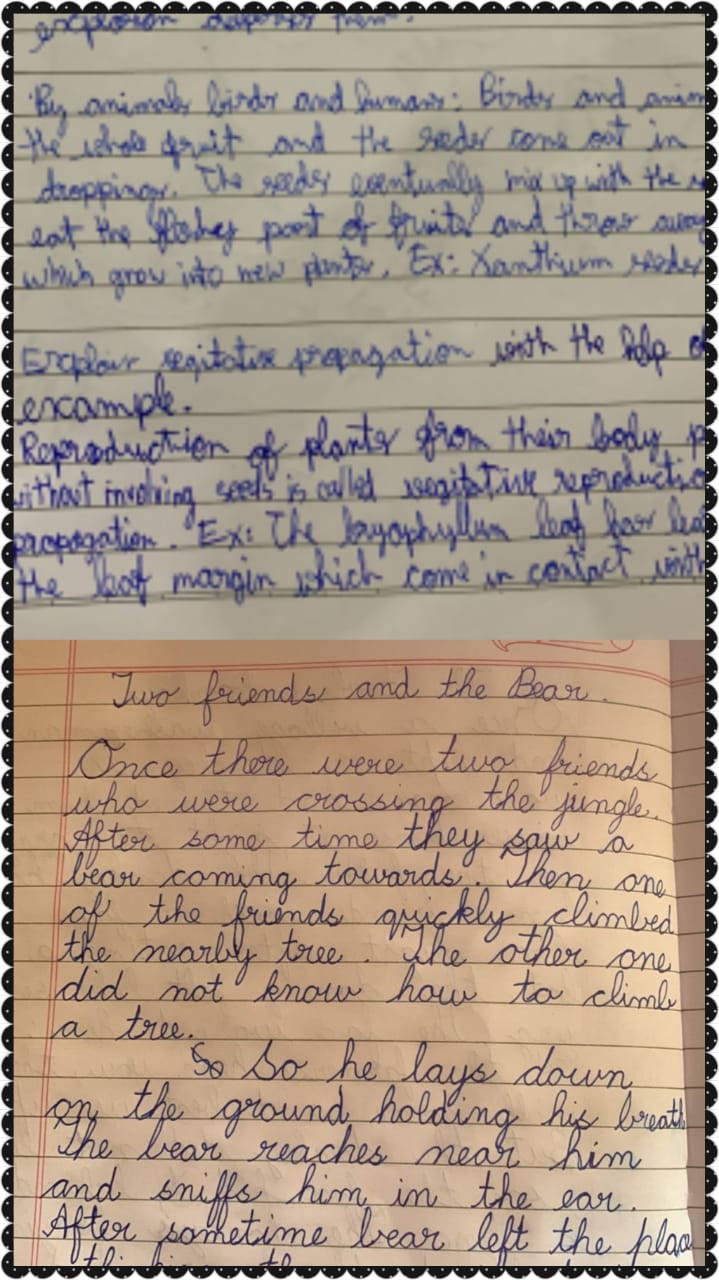 explosion disperses them.
By animals birds and humans: Birds and
the whole fruit and the seeds come out in
droppings. The seeds eventually mix up with the
eat the fleshey part of fruits and throw away
which grow into new plants. Ex: Xanthium seeds
Explain vegitative propagation with the help of
example.
Reproduction of plants from their body
without involving seeds is called vegitative
propagation. Ex: The bryophyllum leaf
the leaf margin which come in contact with
Two friends and the Bear.
Once there were two friends
who were crossing the jungle.
After some time they saw a
bear coming towards. Then one
of the friends quickly climbed
the nearby tree. The other one
did not know how to climb
a tree.
So So he lays down
on the ground holding his breath
The bear reaches near him
and sniffs him in the ear.
After sometime bear left the place